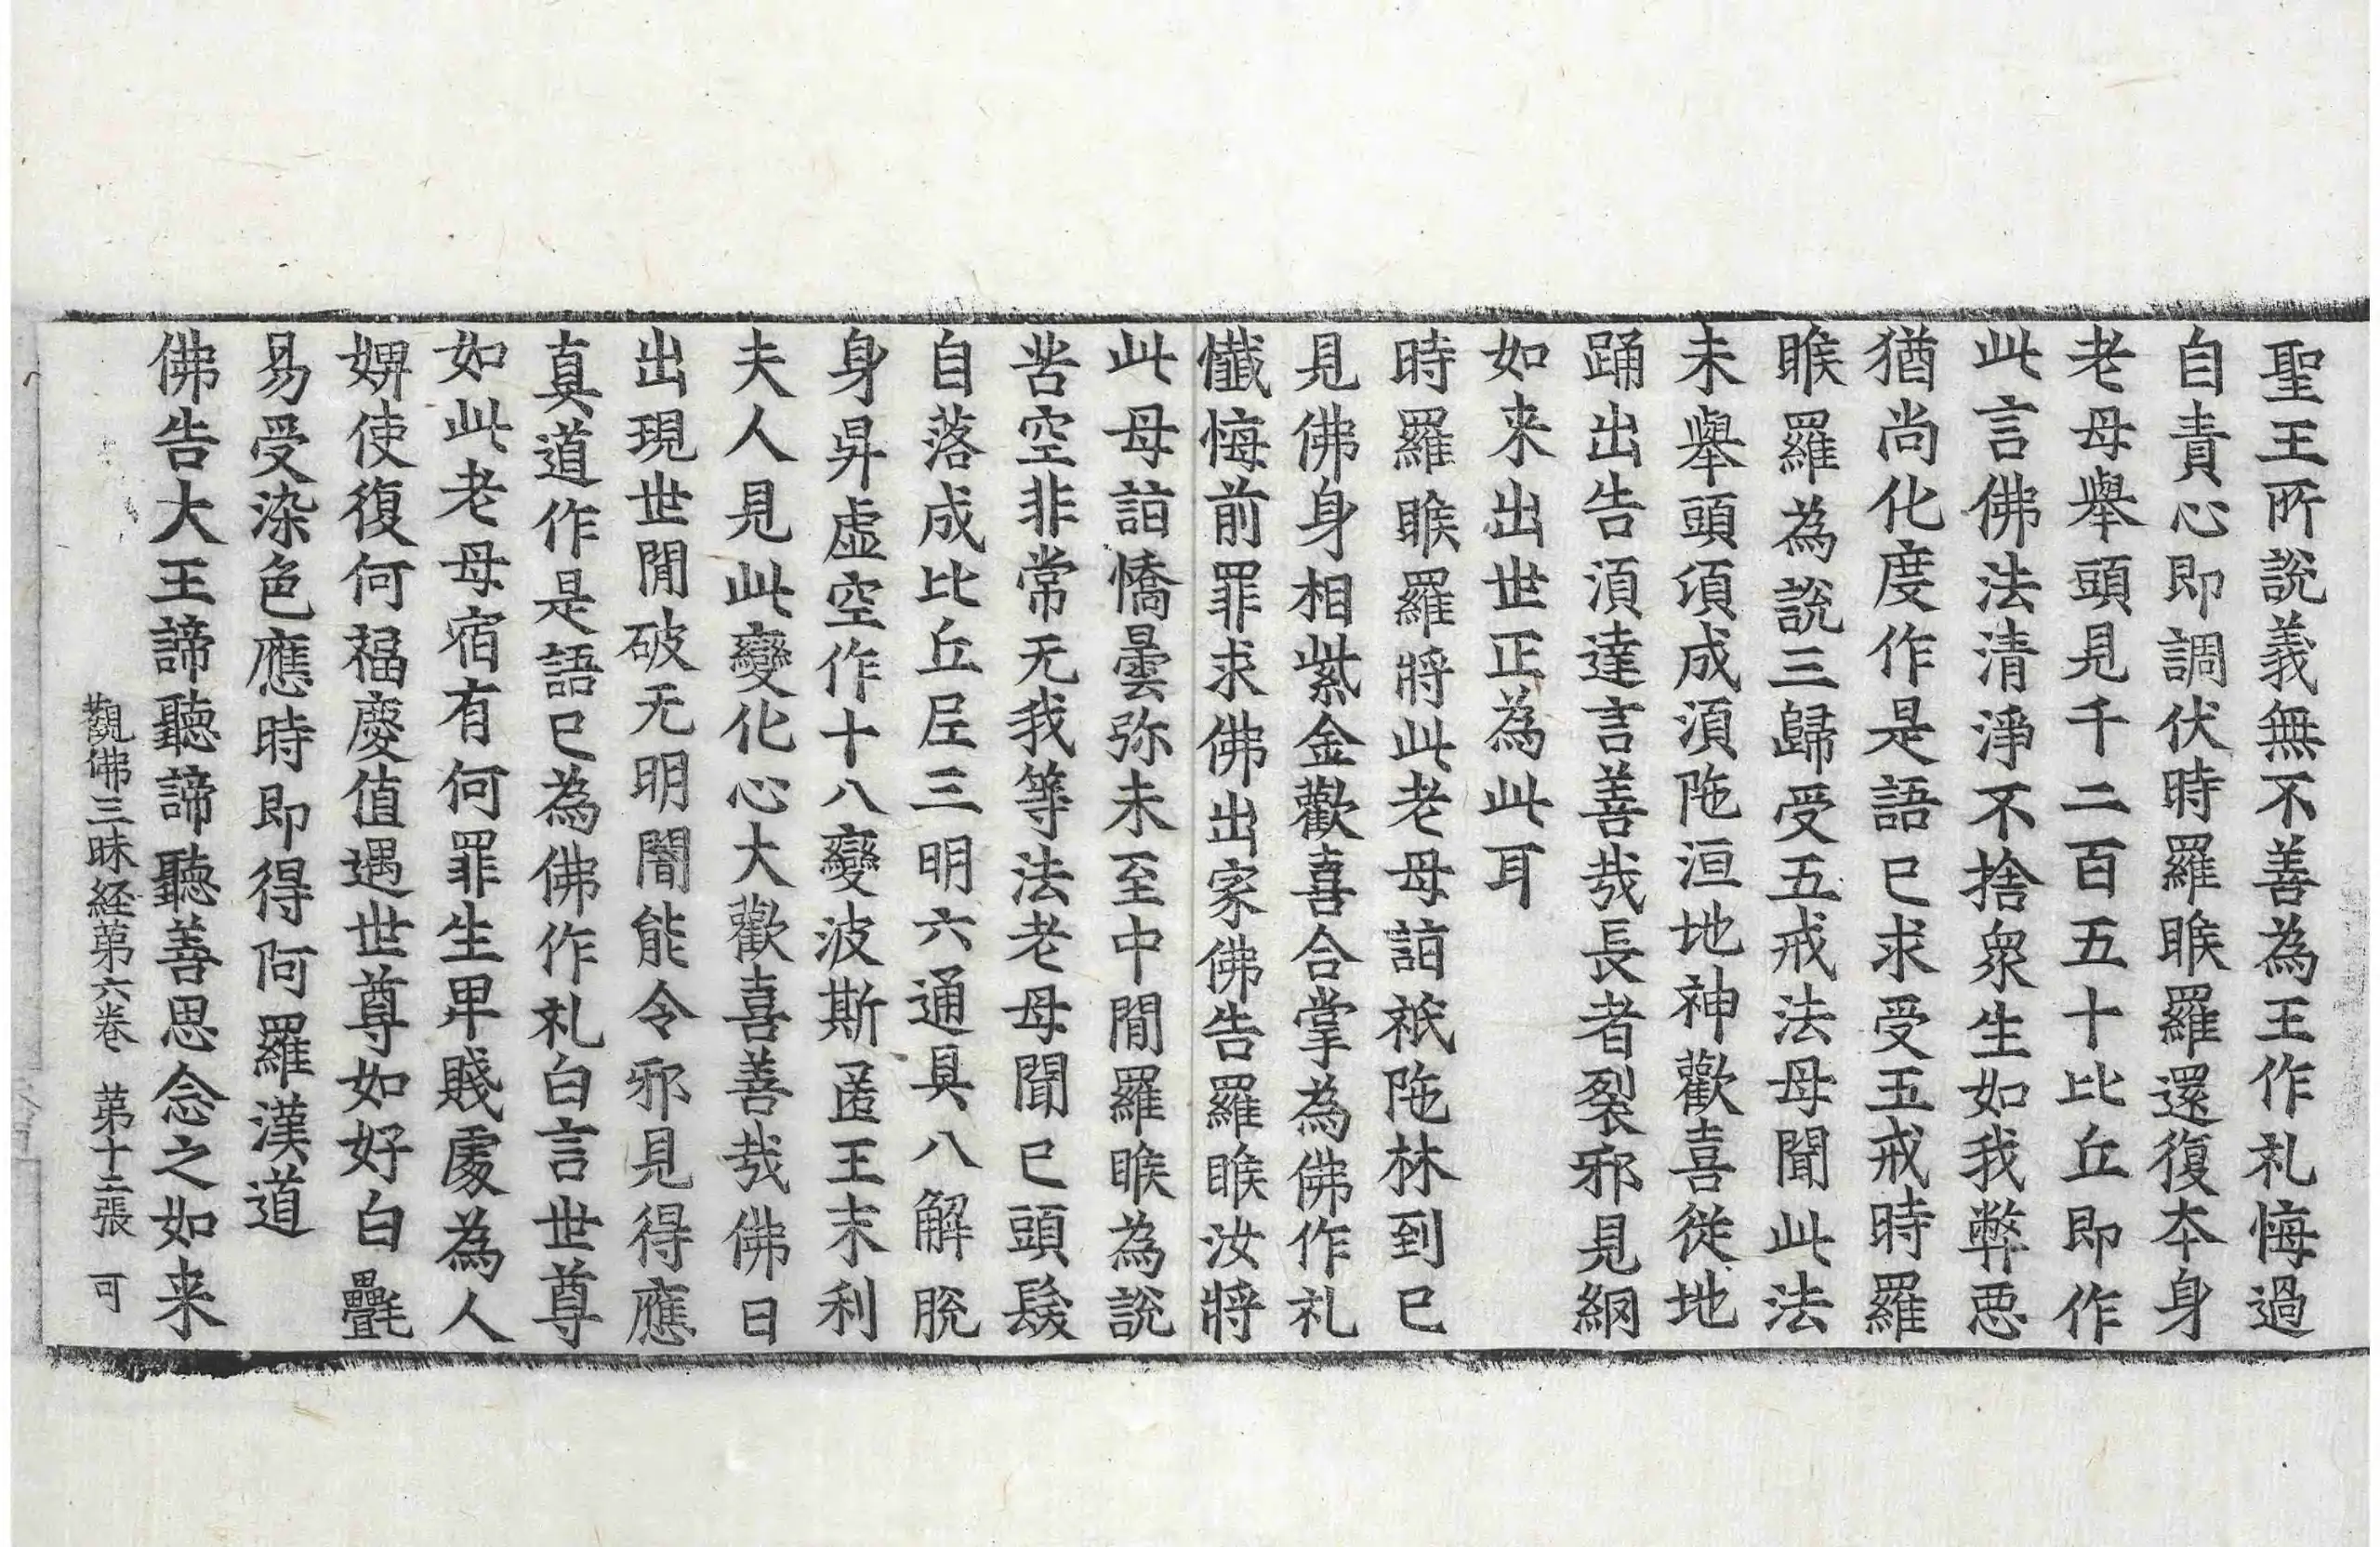 聖王所說義無不善為王作礼悔過
自責心即調伏時羅睺羅還復本身
老母舉頭見千二百五十比丘即作
此言佛法清淨不捨衆生如我弊惡
猶尚化度作是語已求受五戒時羅
睺羅為說三歸受五戒法母聞此法
未舉頭項成湏陁洹地神歡喜從地
踊出告湏達言善哉長者裂邪見網
如来出世正為此耳
時羅睺羅將此老母詣祇陁林到已
見佛身相紫金歡喜合掌為佛作礼
懺悔前罪求佛出家佛告羅睺汝將
此母詣憍曇弥未至中閒羅睺為說
苦空非常无我等法老母聞已頭髮
自落成比丘尼三明六通具八解脫
身昇虛空作十八變波斯匿王末利
夫人見此變化心大歡喜善哉佛日
出現世閒破无明闇能令邪見得應
真道作是語已為佛作礼白言世尊
如此老母宿有何罪生卑賤處為人
婢使復何福慶值遇世尊如好白㲲
易受染色應時即得阿羅漢道
佛告大王諦聽諦聽善思念之如来
觀佛三昧経第六卷　第十二張　可